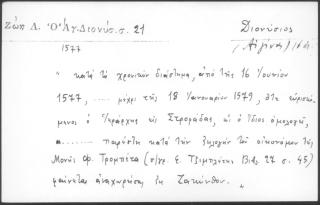 Ζώη Λ. Ὁ Ἅγ. Διονύσ. σ. 21
Διονύσιος
1577
(Αἰγίνης)
" κατὰ τὸ χρονικὸν διάστημα, ἀπὸ τῆς 16 Ἰουνίου
1577, ....... μέχρι τῆς 18 Ἰανουαρίου 1579, ὅτε εὑρισκό-
μενος ὁ Ἱεράρχης εἰς Στροφάδας, ὡς ὁ ἴδιος ὁμολογεῖ,
....... παρέστη κατὰ τὴν ἐκλογὴν τοῦ οἰκονόμου τῆς
Μονῆς Φρ. Τρομπέτα (σ/γρ. Ε. Τζιμπλέτη Βιβ. 27 σ. 45)
φαίνεται ἀναχωρήσας ἐκ Ζακύνθου. "